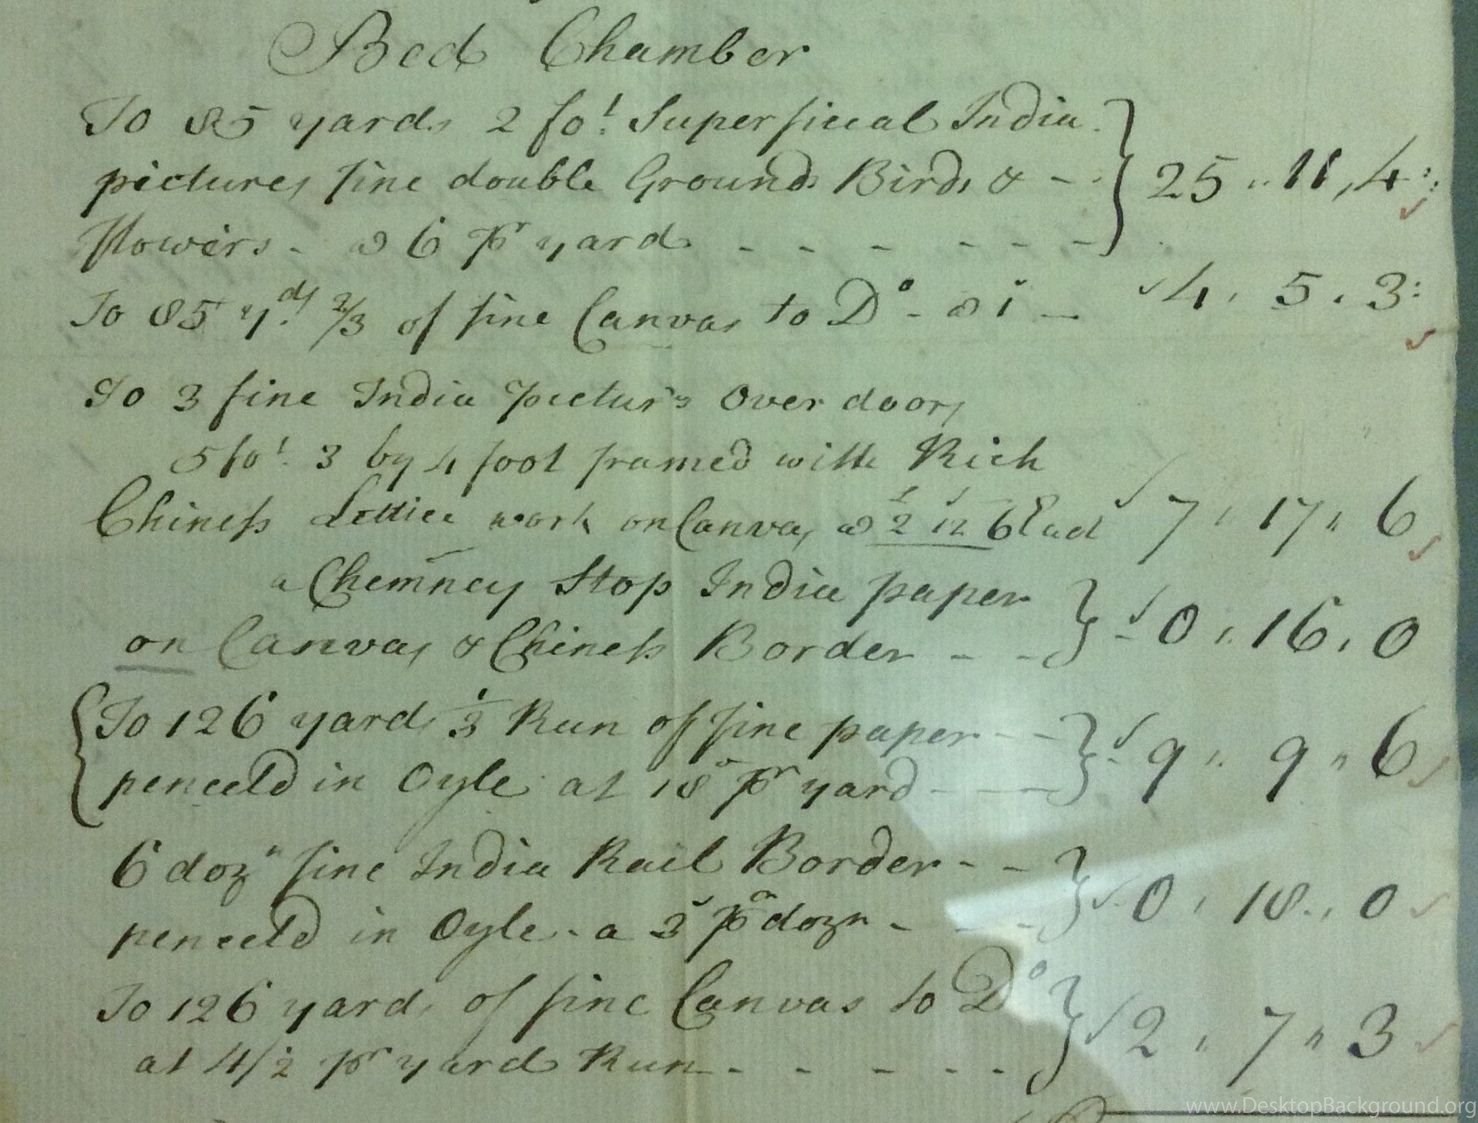 Bed Chamber
To 85 yards 2 fot Superficeal India
pictures fine double Ground Birds & - 25 " 11 , 4
flowers - a 6 pr yard - - - - - - -
To 85 yds 2/3 of fine Canvas to Do - a 1 - 4 , 5 , 3
To 3 fine India picturs Over doors
5 fot 3 by 4 foot framed with Rich
Chiness Lettice work on Canvas a 2 12 6 Each 7 , 17 " 6
a Chemney Stop India paper
on Canvas & Chiness Border - - 0 " 16 , 0
To 126 yards 1/3 Run of fine paper - -
penceld in Oyle at 18 pr yard - - - 9 " 9 " 6
6 dozn fine India Rail Border - -
penceld in Oyle - a 3 pr dozn - - - 0 , 18 , 0
To 126 yards of fine Canvas to Do
at 4/2 pr yard Run - - - - - 2 " 7 " 3
www.DesktopBackground.org